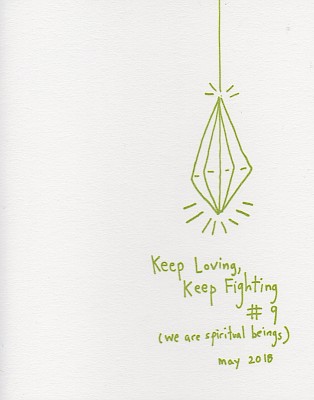 Keep Loving,
Keep Fighting
# 9
(we are spiritual beings)
may 2018